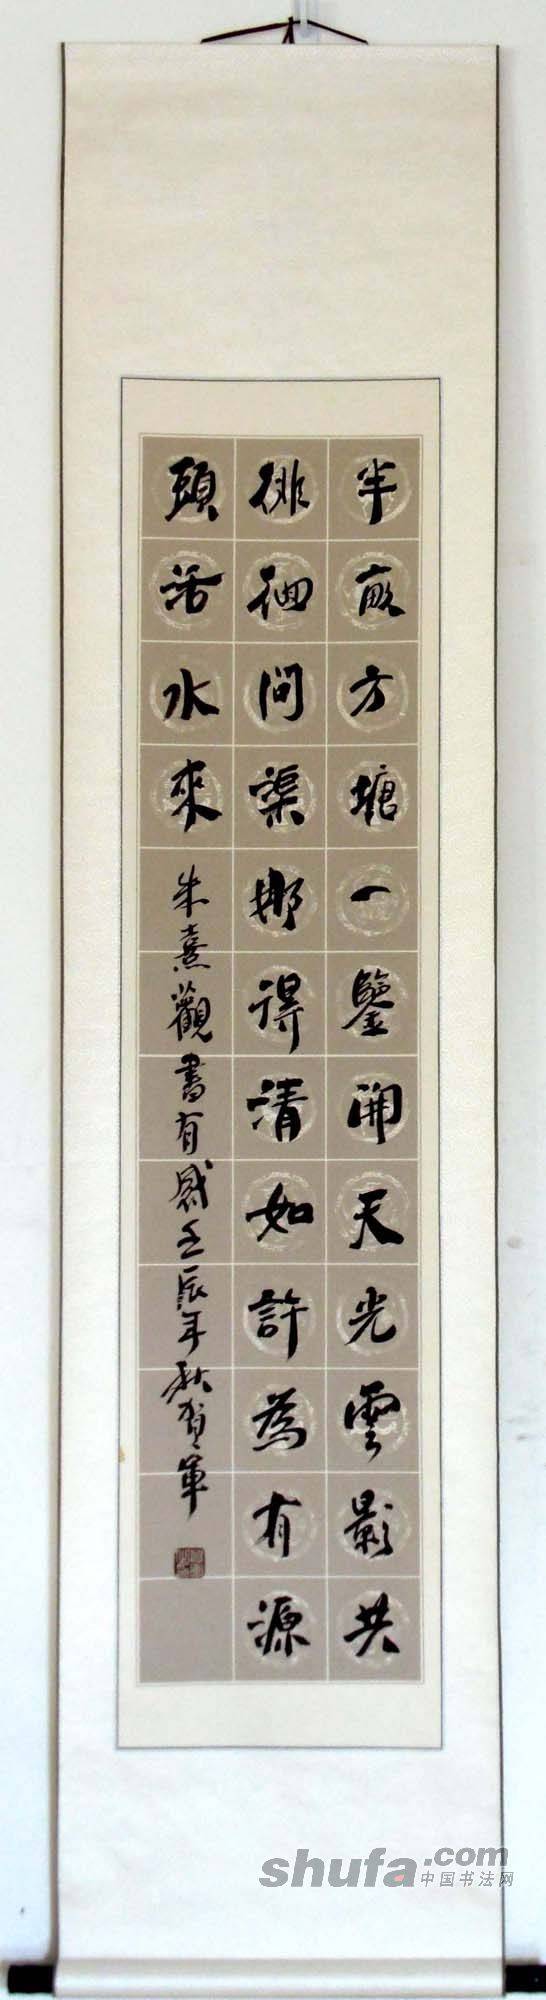 半畝方塘一鑒開天光雲影共
徘徊問渠那得清如許為有源
頭活水來
朱熹觀書有感壬辰年秋賀軍
shufa.com
中国书法网